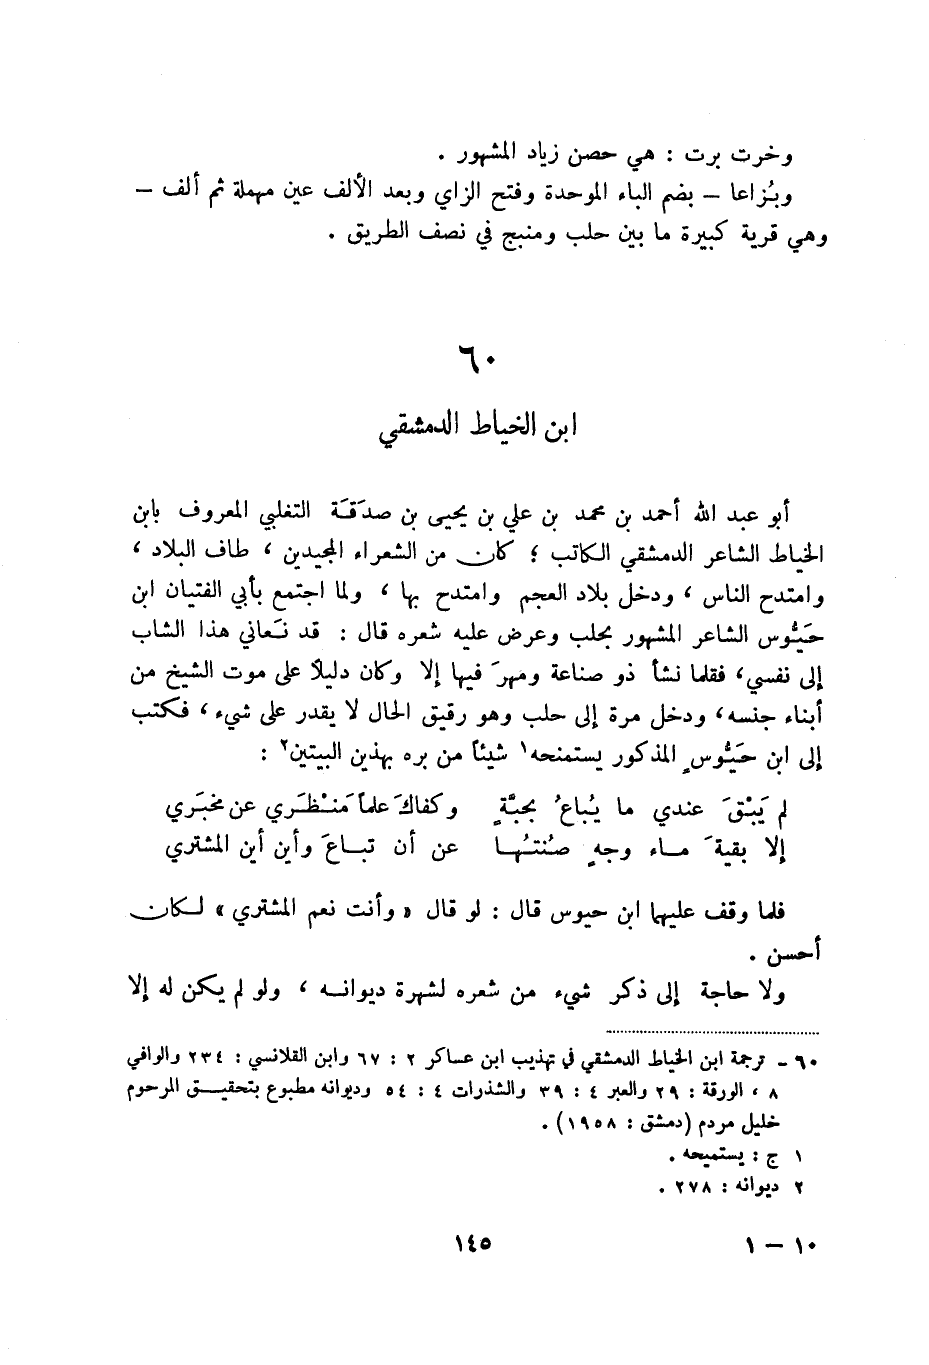 وخرت برت : هي حصن زياد المشهور .
وبُزاعا – بضم الباء الموحدة وفتح الزاي وبعد الألف عين مهملة ثم ألف –
وهي قرية كبيرة ما بين حلب ومنبج في نصف الطريق .
٦٠
ابن الخياط الدمشقي
أبو عبد الله أحمد بن محمد بن علي بن يحيى بن صدَقَة التغلبي المعروف بابن
الخياط الشاعر الدمشقي الكاتب ؛ كان من الشعراء المجيدين ، طاف البلاد ،
وامتدح الناس ، ودخل بلاد العجم وامتدح بها ، ولما اجتمع بأبي الفتيان ابن
حَيُّوس الشاعر المشهور بحلب وعرض عليه شعره قال : قد نَعاني هذا الشاب
إلى نفسي، فقلما نشأ ذو صناعة ومهرَ فيها إلا وكان دليلاً على موت الشيخ من
أبناء جنسه، ودخل مرة إلى حلب وهو رقيق الحال لا يقدر على شيء ، فكتب
إلى ابن حَيُّوسٍ المذكور يستمنحه١ شيئاً من بره بهذين البيتين٢ :
لم يَبْقَ عندي ما يُباعُ بحبَّةٍ وكفاكَ علماً مَنْظَري عن مخبَري
إلا بقيةَ ماء وجهٍ صُنتُها عن أن تباعَ وأين أين المشتري
فلما وقف عليها ابن حيوس قال : لو قال « وأنت نعم المشتري » لكان
أحسن .
ولا حاجة إلى ذكر شيء من شعره لشهرة ديوانه ، ولو لم يكن له إلا
٦٠ – ترجمة ابن الخياط الدمشقي في تهذيب ابن عساكر ٢ : ٦٧ وابن القلانسي : ٢٣٤ والوافي
٨ ، الورقة : ٢٩ والعبر ٤ : ٣٩ والشذرات ٤ : ٥٤ وديوانه مطبوع بتحقيق المرحوم
خليل مردم (دمشق : ١٩٥٨) .
١ ج : يستميحه .
٢ ديوانه : ٢٧٨ .
١٠ – ١ ١٤٥